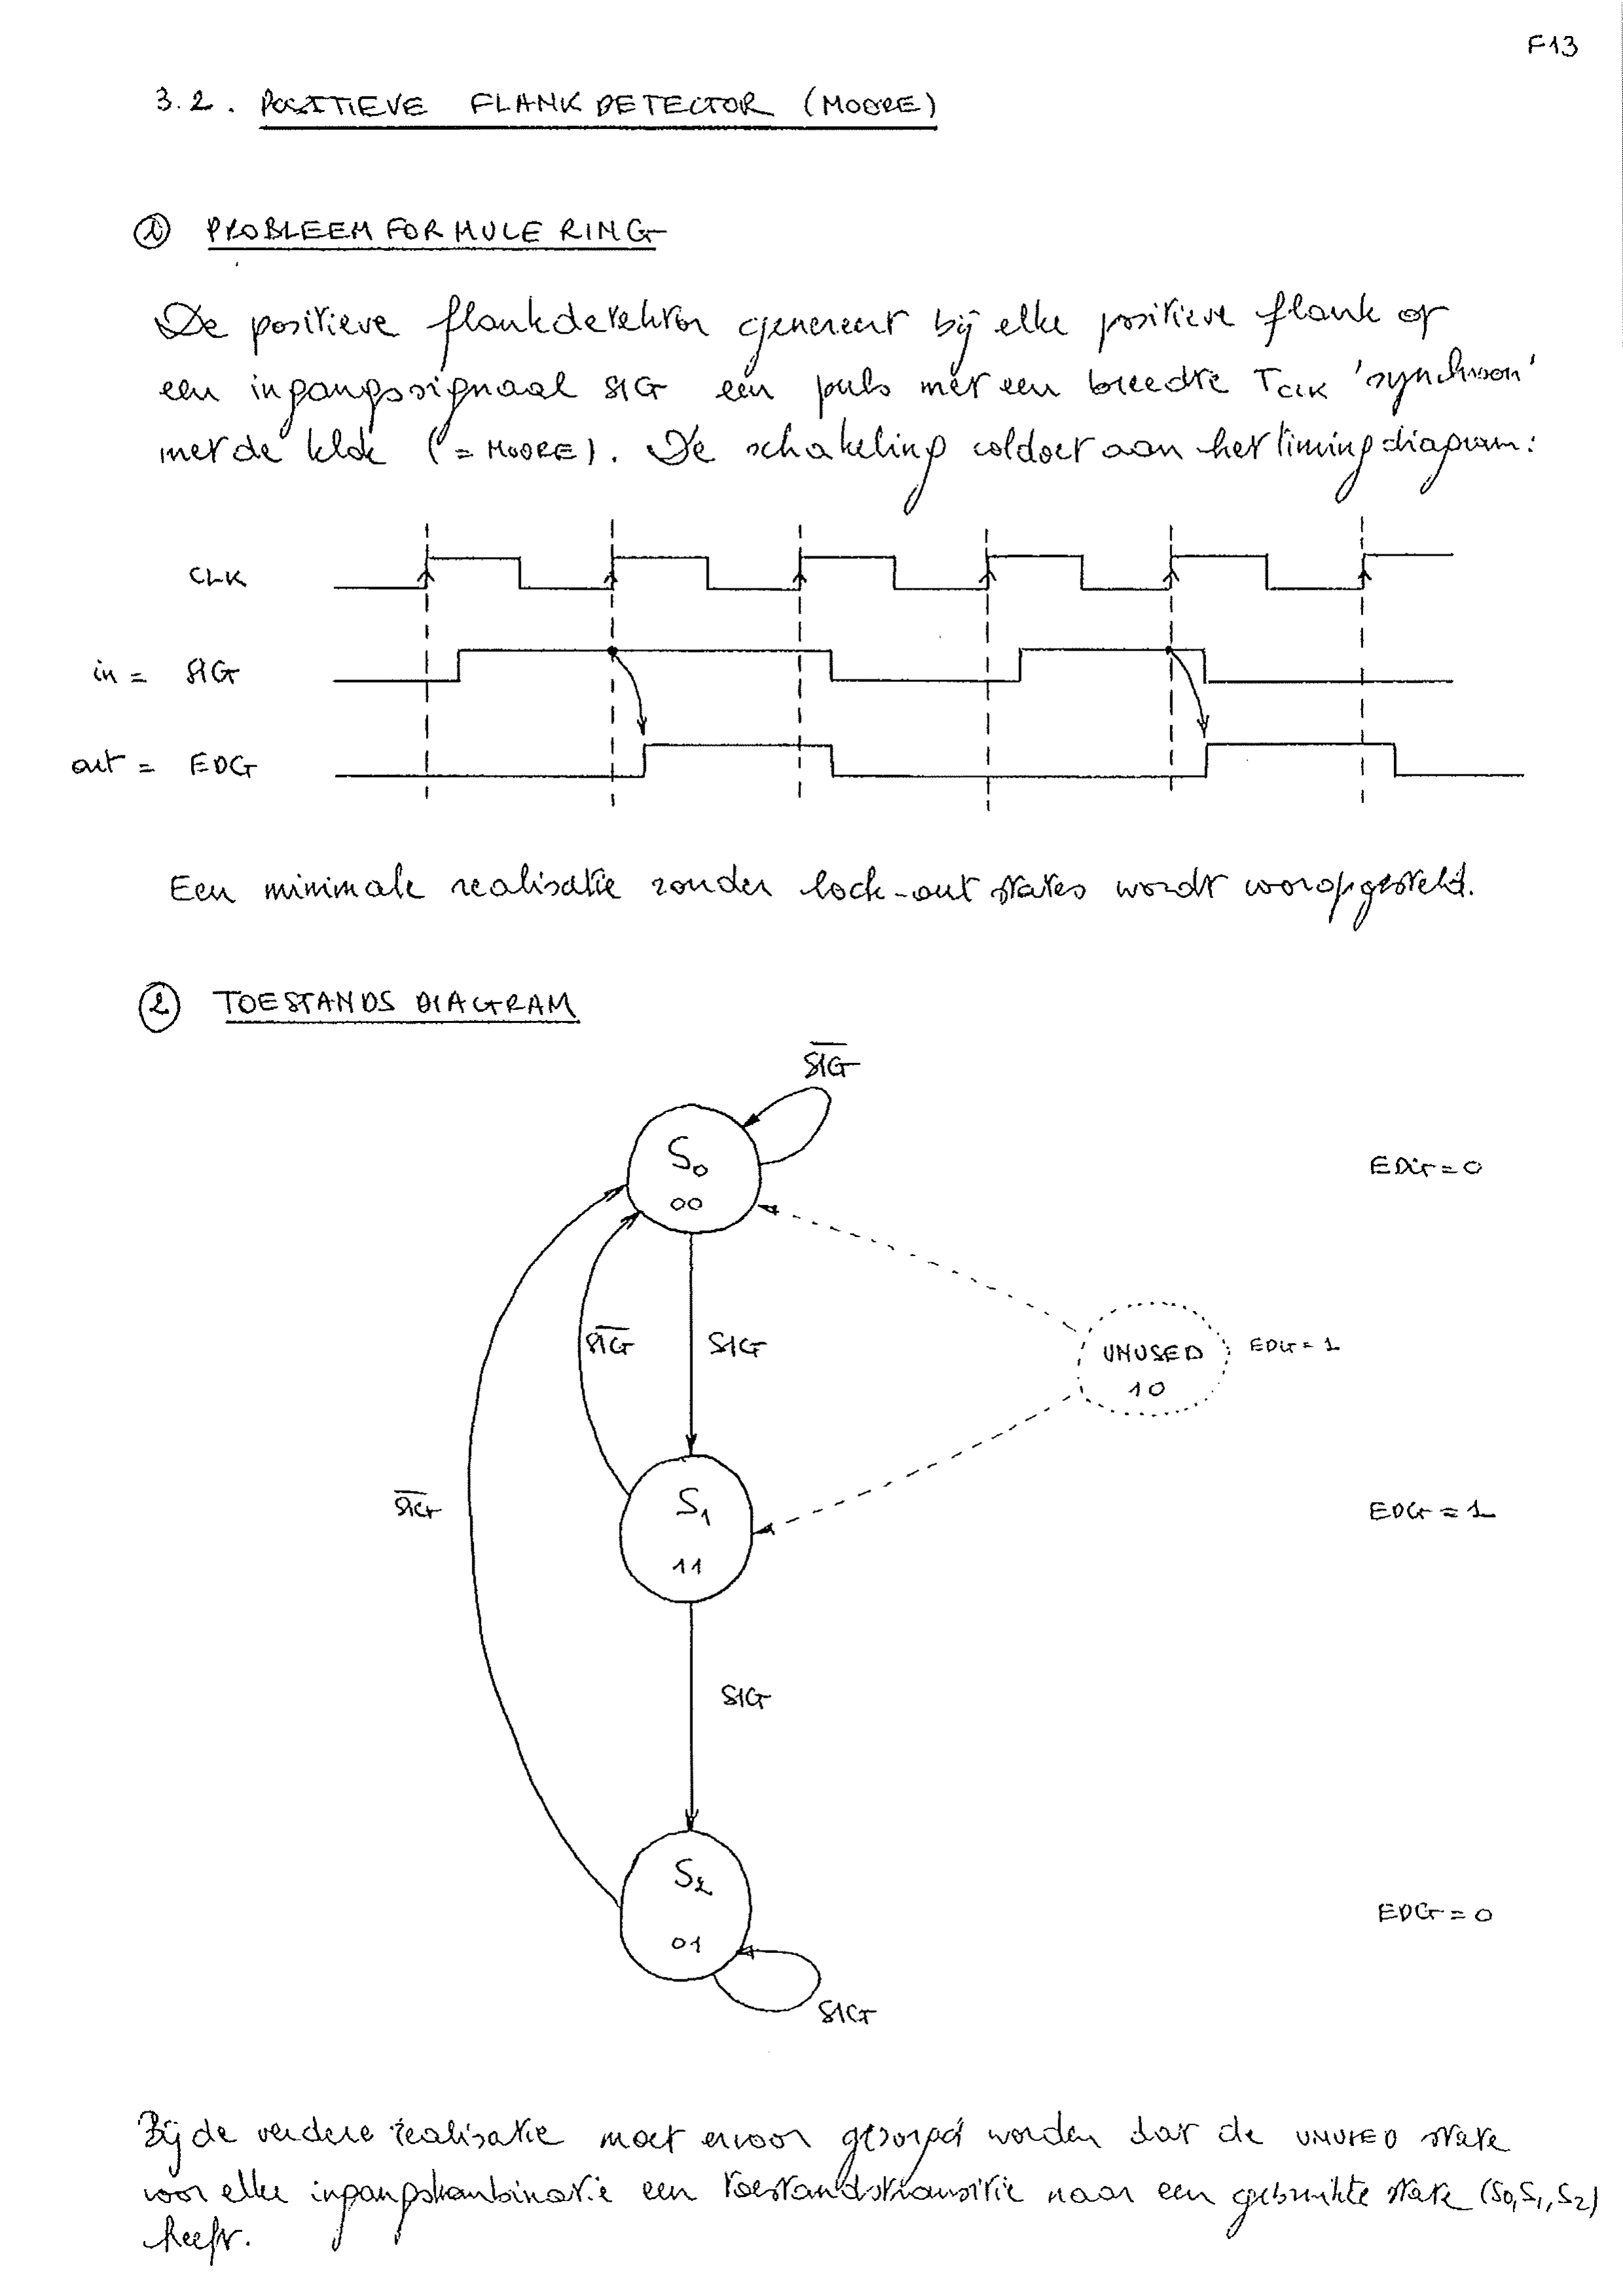 F13
3.2. POSITIEVE FLANKDETECTOR (MOORE)
① PROBLEEMFORMULERING
De positieve flankdetektor genereert bij elke positieve flank op
een ingangssignaal SIG een puls met een breedte TCLK 'synchroon'
met de klok (= MOORE). De schakeling voldoet aan het timing diagram:
CLK
in = SIG
out = EDG
Een minimale realisatie zonder lock-out states wordt vooropgesteld.
② TOESTANDSDIAGRAM
S̅I̅G̅
S₀
00
EDG = 0
S̅I̅G̅ SIG
UNUSED
10
EDG = 1
S̅I̅G̅
S₁
11
EDG = 1
SIG
S₂
01
EDG = 0
SIG
Bij de verdere realisatie moet ervoor gezorgd worden dat de UNUSED state
voor elke ingangskombinatie een toestandstransitie naar een gebruikte state (S₀,S₁,S₂)
heeft.